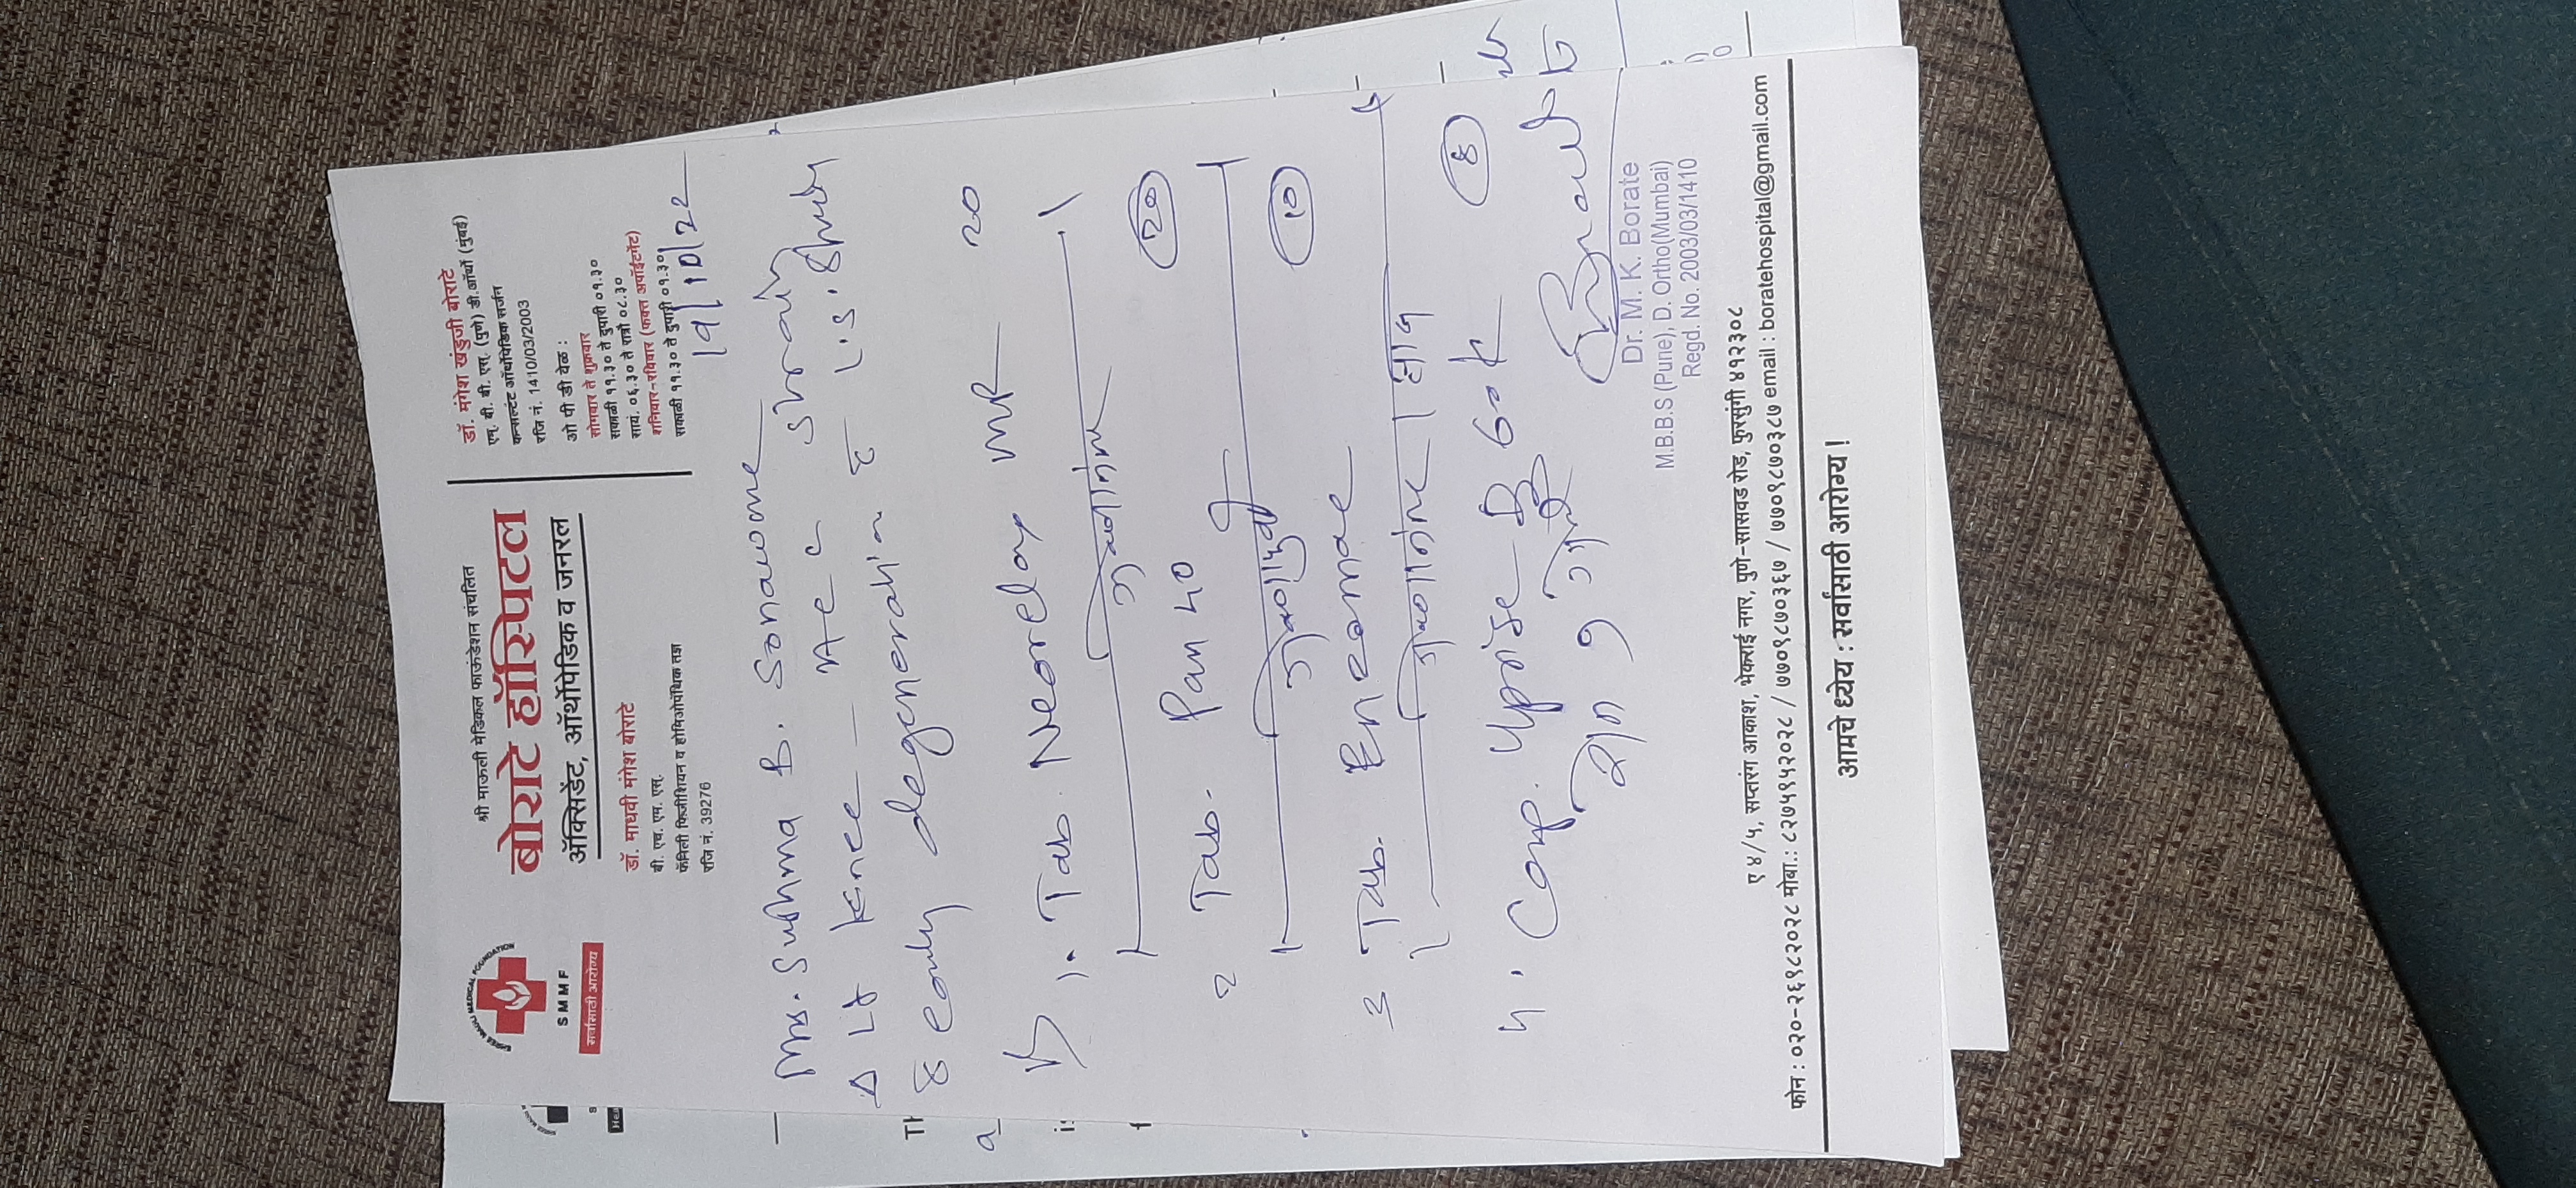 SHREE MAULI MEDICAL FOUNDATION
SMMF
सर्वांसाठी आरोग्य
श्री माऊली मेडिकल फाऊंडेशन संचलित
बोराटे हॉस्पिटल
ॲक्सिडेंट, ऑर्थोपेडिक व जनरल
डॉ. माधवी मंगेश बोराटे
बी. एच. एम. एस.
फॅमिली फिजीशियन व होमिओपॅथिक तज्ञ
रजि नं. 39276
डॉ. मंगेश खंडुजी बोराटे
एम्. बी. बी. एस. (पुणे) डी.ऑर्थो (मुंबई)
कन्सल्टंट ऑर्थोपेडिक सर्जन
रजि नं. 1410/03/2003
ओ पी डी वेळ :
सोमवार ते शुक्रवार
सकाळी ११.३० ते दुपारी ०१.३०
सायं. ०६.३० ते रात्रौ ०८.३०
शनिवार-रविवार (फक्त अपॉईंटमेंट)
सकाळी ११.३० ते दुपारी ०१.३०
19/10/22
Mrs. Sushma B. Sonawane
Δ Lt knee - strain
early degeneration L.S.
1. Tab. Neorelax MR 20
जेवणानंतर
2 Tab. Pan 40 20
जेवणापुर्वी
3 Tab. Enzomac 10
जेवणानंतर
4. Cap. Uprise D3 60k 8
Dr. M. K. Borate
M.B.B.S (Pune), D. Ortho(Mumbai)
Regd. No. 2003/03/1410
ए ४/५, सप्तरंग आकाश, भेकराई नगर, पुणे-सासवड रोड, फुरसुंगी ४१२३०८
फोन : ०२०-२६९८२०२८ मोबा.: ८२७५९५२०२८ / ७७०९८७०३६७ / ७७०९८७०३८७ email : boratehospital@gmail.com
आमचे ध्येय : सर्वांसाठी आरोग्य !